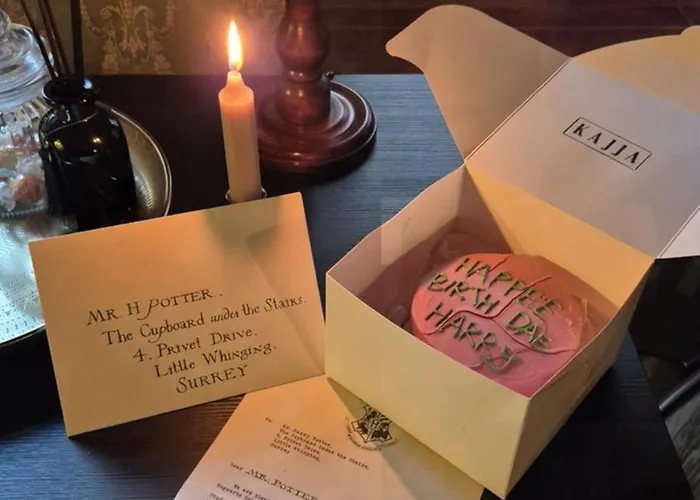 MR. H POTTER.
The Cupboard under the Stairs.
4. Privet Drive.
Little Whinging.
SURREY
KAJJA
HAPPEE
BIRTHDAE
HARRY
To:
Mr. Harry Potter,
The Cupboard Under the Stairs,
4 Privet Drive,
Little Whinging,
Surrey
Dear MR. POTTER
We are
Hogwarts